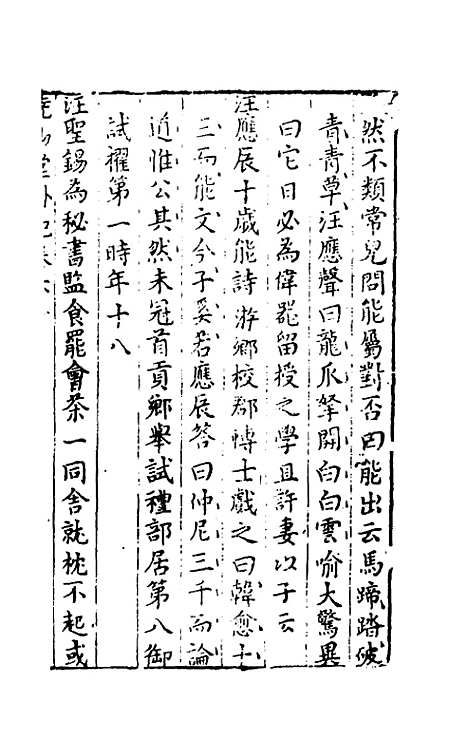 然不類常兒問能屬對否曰能出云馬蹄踏破
青青草汪應聲曰龍爪拏開白白雲喻大驚異
曰它日必為偉器留授之學且許妻以子云
汪應辰十歲能詩游鄉校郡博士戲之曰韓愈十
三而能文今子奚若應辰答曰仲尼三千而論
道惟公其然未冠首貢鄉舉試禮部居第八御
試擢第一時年十八
汪聖錫為秘書監食罷會茶一同舍就枕不起或
堯山堂外紀卷六